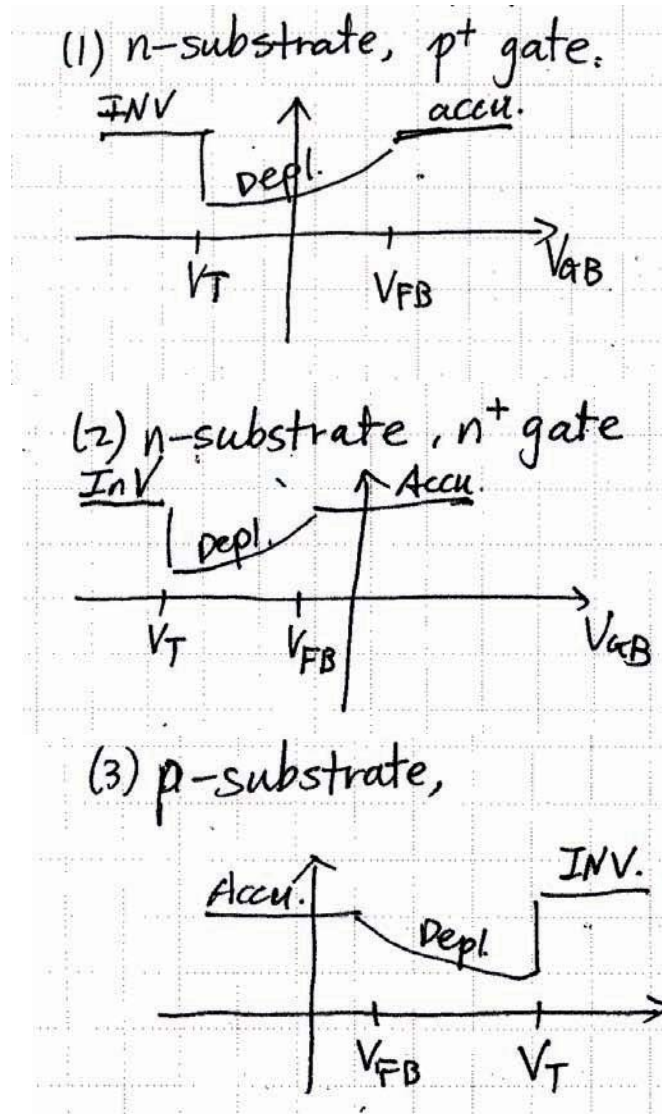 (1) n-substrate, p+ gate.
INV
accu.
Depl.
VT
VFB
VGB
(2) n-substrate, n+ gate
InV
Accu.
Depl.
VT
VFB
VGB
(3) p-substrate,
Accu.
INV.
Depl.
VFB
VT